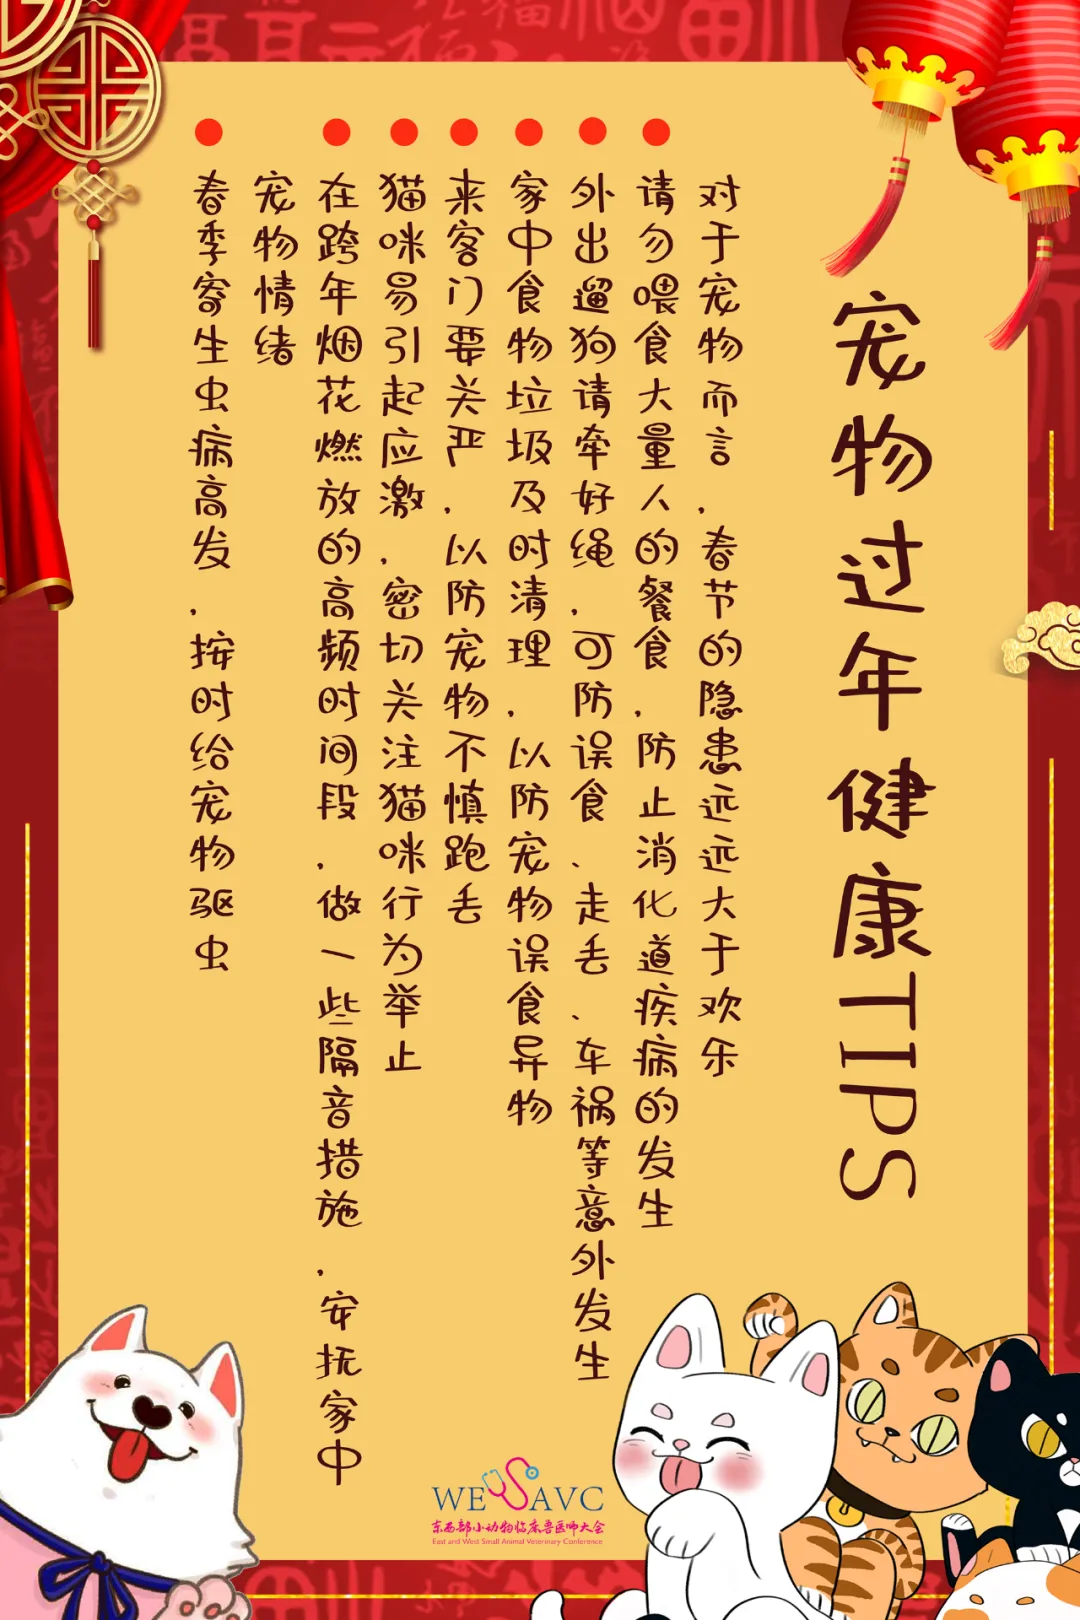 宠物过年健康TIPS
对于宠物而言,春节的隐患远远大于欢乐
请勿喂食大量人的餐食,防止消化道疾病的发生
外出遛狗请牵好绳,可防误食、走丢、车祸等意外发生
家中食物垃圾及时清理,以防宠物误食异物
来客门要关严,以防宠物不慎跑丢
猫咪易引起应激,密切关注猫咪行为举止
在跨年烟花燃放的高频时间段,做一些隔音措施,安抚家中
宠物情绪
春季寄生虫病高发,按时给宠物驱虫
WESAVC
东西部小动物临床兽医师大会
East and West Small Animal Veterinary Conference